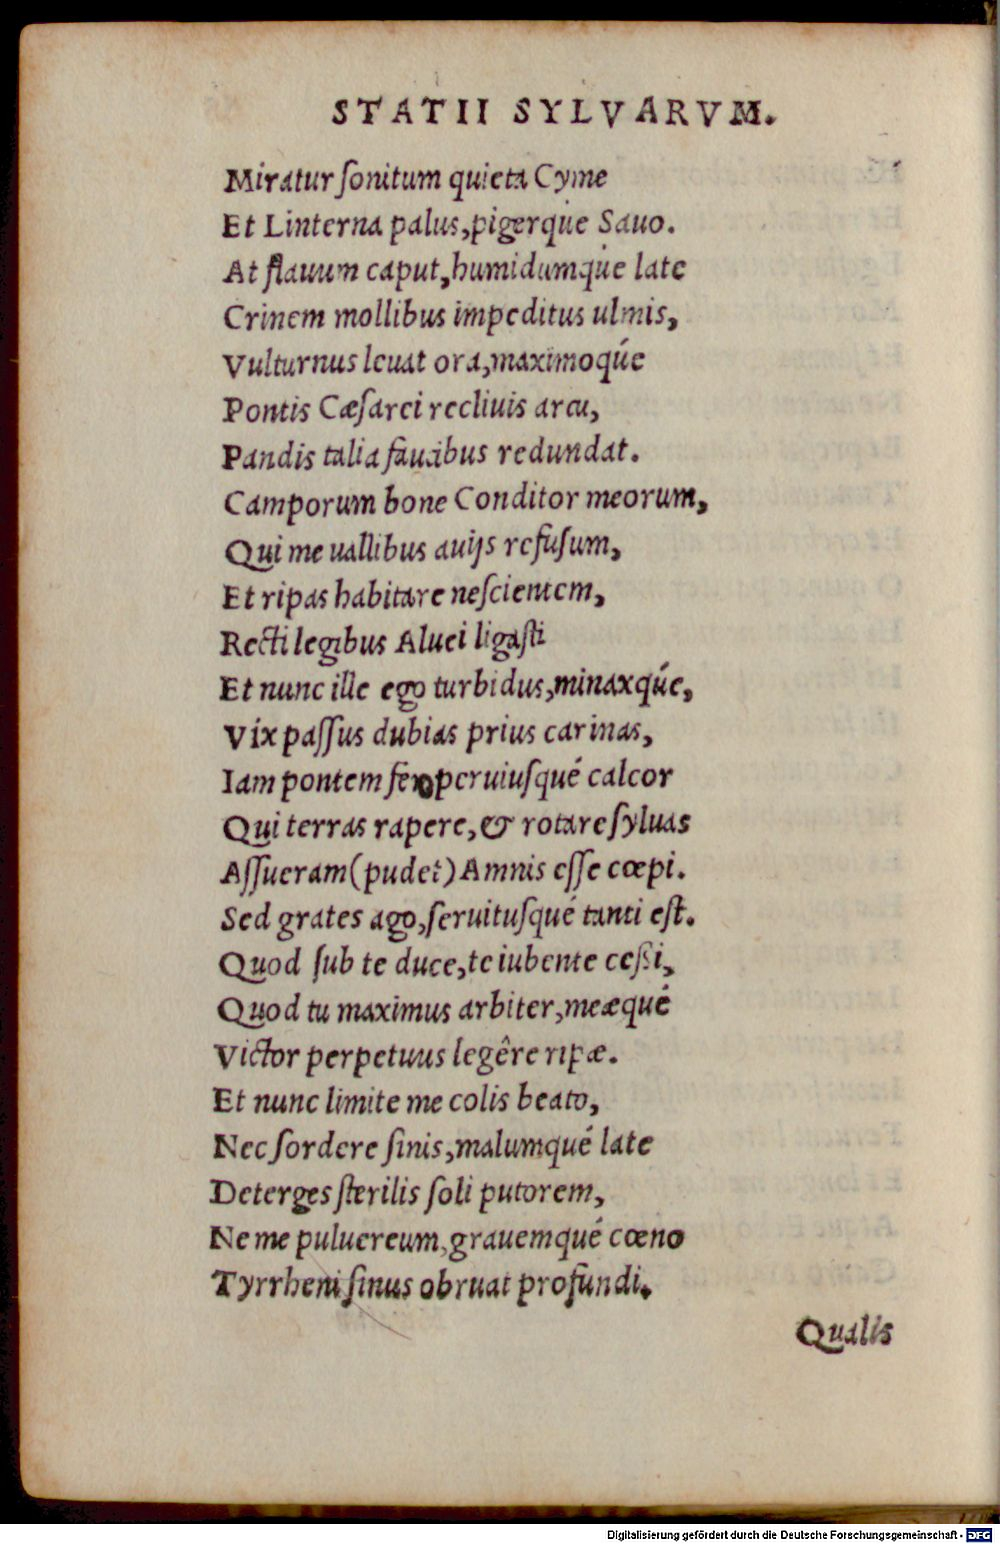 STATII SYLVARVM.
Miratur ſonitum quieta Cyme
Et Linterna palus,pigerq́ue Sauo.
At flauum caput,humidumq́ue late
Crinem mollibus impeditus ulmis,
Vulturnus leuat ora,maximoq́ue
Pontis Cæſarei recliuis arcu,
Pandis talia faucibus redundat.
Camporum bone Conditor meorum,
Qui me uallibus auijs refuſum,
Et ripas habitare neſcientem,
Recti legibus Aluei ligaſti
Et nunc ille ego turbidus,minaxq́ue,
Vix paſſus dubias prius carinas,
Iam pontem fero,peruiuſqué calcor
Qui terras rapere,& rotare ſyluas
Aſſueram(pudet)Amnis eſſe cœpi.
Sed grates ago,ſeruituſqué tanti eſt.
Quod ſub te duce,te iubente ceſsi,
Quod tu maximus arbiter,meæqué
Victor perpetuus legêre ripæ.
Et nunc limite me colis beato,
Nec ſordere ſinis,malumqué late
Deterges ſterilis ſoli putorem,
Ne me puluereum,grauemqué cœno
Tyrrheni ſinus obruat profundi.
Qualis
Digitalisierung gefördert durch die Deutsche Forschungsgemeinschaft - DFG